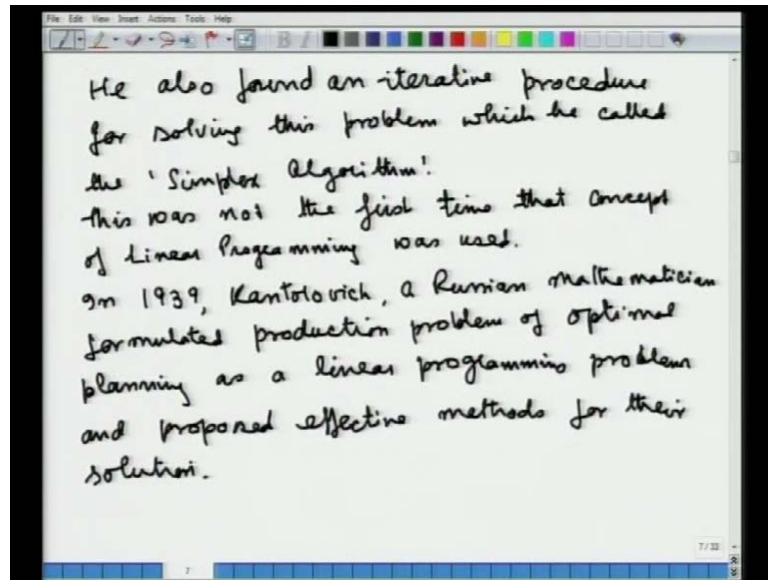 File Edit View Insert Actions Tools Help
He also found an iterative procedure
for solving this problem which he called
the 'Simplex Algorithm'.
This was not the first time that concept
of Linear Programming was used.
In 1939, Kantolovich, a Russian mathematician
formulated production problem of optimal
planning as a linear programming problem
and proposed effective methods for their
solution.
7/33
7